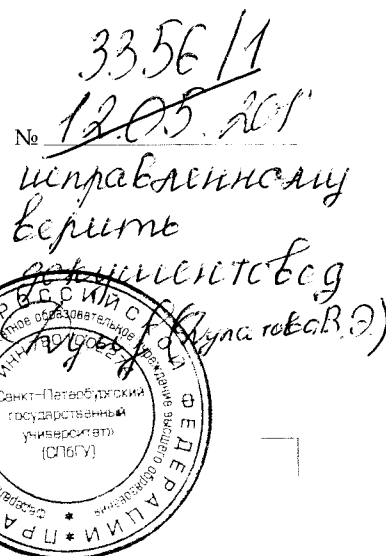 3356/1
№ 12.05.201
исправленному
верить
документовед
(Булатова В.Э.)
РОССИЙСКОЙ ФЕДЕРАЦИИ * ПРА
образовательное учреждение высшего образования
ИНН
Санкт-Петербургский
государственный
университет»
(СПбГУ)